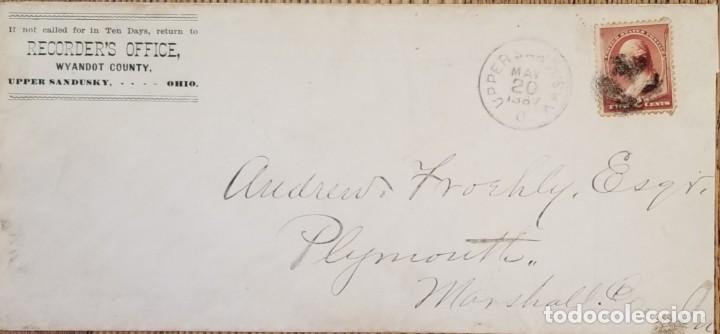 If not called for in Ten Days, return to
RECORDER'S OFFICE,
WYANDOT COUNTY,
UPPER SANDUSKY, - - - - OHIO.
UPPER SANDUSKY
MAY
20
1887
O
UNITED STATES POSTAGE
CENTS
Andrew Froehly, Esqr.
Plymouth
Marshall Co
todocoleccion